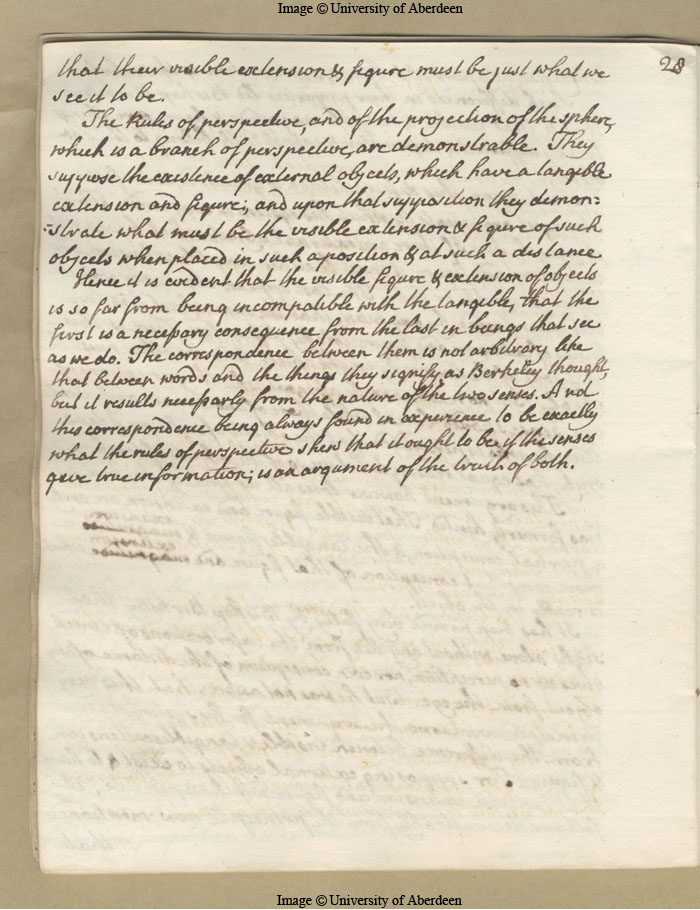 Image © University of Aberdeen
28
that their visible extension & figure must be just what we
see it to be.
The Rules of perspective, and of the projection of the sphere,
which is a branch of perspective, are demonstrable. They
suppose the existence of external objects, which have a tangible
extension and figure; and upon that supposition they demon=
=strate what must be the visible extension & figure of such
objects when placed in such a position & at such a distance
Hence it is evident that the visible figure & extension of objects
is so far from being incompatible with the tangible, that the
first is a necessary consequence from the last in beings that see
as we do. The correspondence between them is not arbitrary like
that between words and the things they signify as Berkeley thought,
but it results necessarly from the nature of the two senses. And
this correspondence being always found in experience to be exactly
what the rules of perspective shew that it ought to be if the senses
give true information; is an argument of the truth of both.
Image © University of Aberdeen